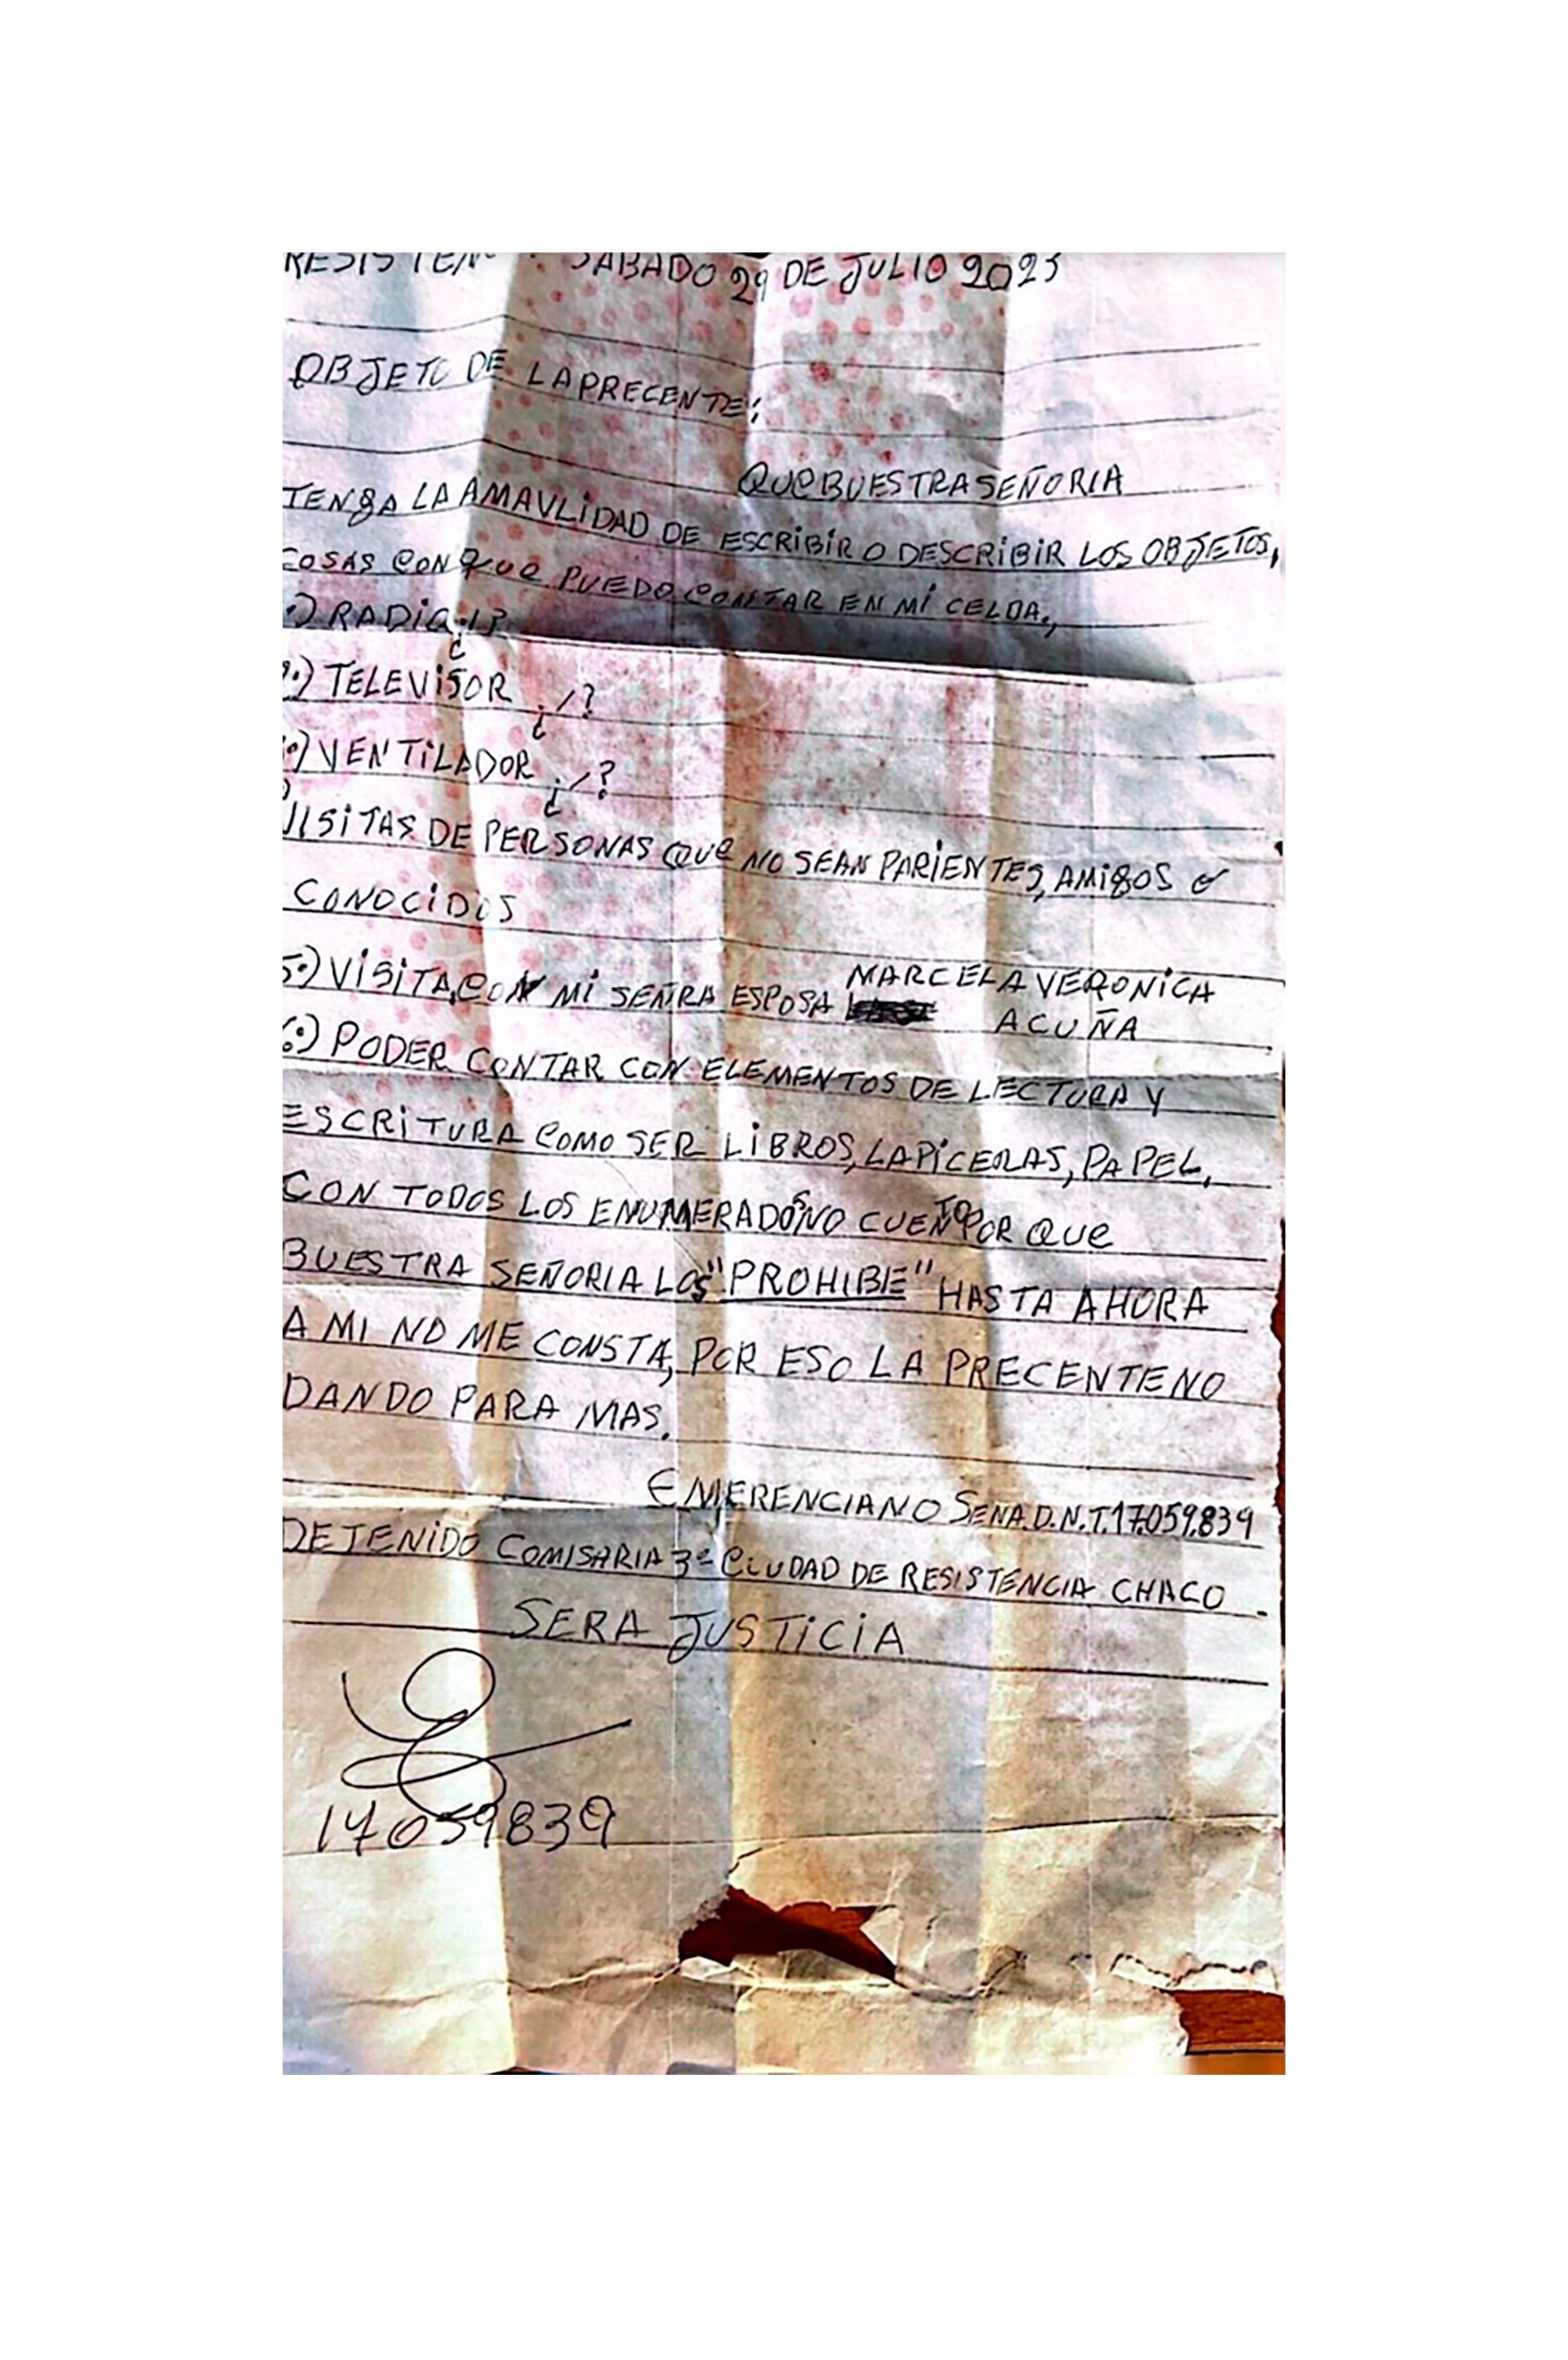 RESISTEN SABADO 29 DE JULIO 2023
OBJETO DE LA PRECENTE:
QUE BUESTRA SEÑORIA
TENGA LA AMAVLIDAD DE ESCRIBIR O DESCRIBIR LOS OBJETOS,
COSAS CON QUE PUEDO CONTAR EN MI CELDA.,
.) RADIO ¿/?
2.) TELEVISOR ¿/?
.) VENTILADOR ¿/?
VISITAS DE PERSONAS QUE NO SEAN PARIENTES, AMIGOS O
CONOCIDOS
5.) VISITA, CON MI SEÑRA ESPOSA MARCELA VERONICA
ACUÑA
6.) PODER CONTAR CON ELEMENTOS DE LECTURA Y
ESCRITURA COMO SER LIBROS, LAPICERAS, PAPEL,
CON TODOS LOS ENUMERADOS NO CUENTO POR QUE
BUESTRA SEÑORIA LOS "PROHIBE" HASTA AHORA
A MI NO ME CONSTA, POR ESO LA PRECENTE NO
DANDO PARA MAS.
EMERENCIANO SENA. D.N.I. 17.059.839
DETENIDO COMISARIA 3º CIUDAD DE RESISTENCIA CHACO.
SERA JUSTICIA
17059839